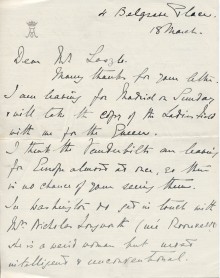 4 Belgrave Place.
18 March.
Dear Mr Laszlo
Many thanks for your letter.
I am leaving for Madrid on Sunday
& will take the copy of the Ladies Field
with me for the Queen.
I think the Vanderbilts are leaving
for Europe almost at once, so there
is no chance of your seeing them.
In Washington do get in touch with
Mrs Nicholas Longworth (née Roosevelt
She is a weird woman but most
intelligent & unconventional.